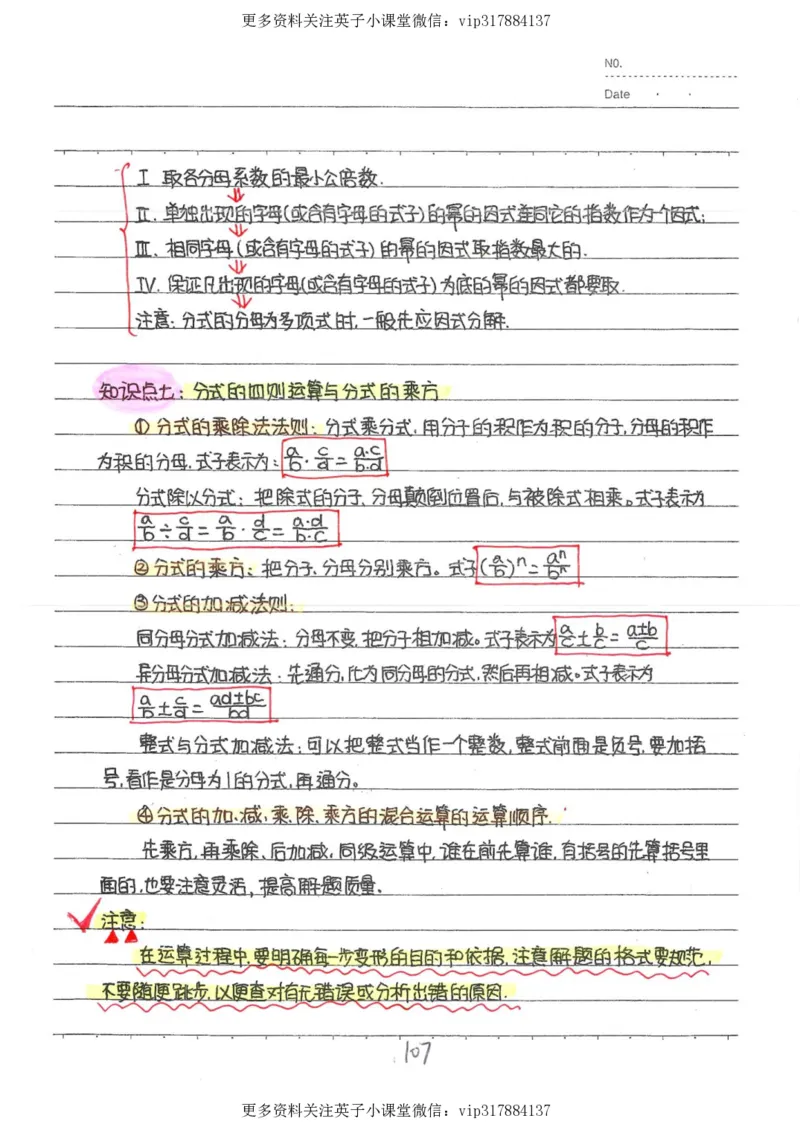 更多资料关注英子小课堂微信：vip317884137
NO.
Date · ·
Ⅰ 取各分母系数的最小公倍数.
Ⅱ. 单独出现的字母(或含有字母的式子)的幂的因式连同它的指数作为一个因式;
Ⅲ. 相同字母(或含有字母的式子)的幂的因式取指数最大的.
Ⅳ. 保证凡出现的字母(或含有字母的式子)为底的幂的因式都要取.
注意: 分式的分母为多项式时,一般先应因式分解.
知识点七: 分式的四则运算与分式的乘方
① 分式的乘除法法则: 分式乘分式,用分子的积作为积的分子,分母的积作
为积的分母.式子表示为: a/b · c/d = a·c/b·d
分式除以分式: 把除式的分子、分母颠倒位置后,与被除式相乘。式子表示为
a/b ÷ c/d = a/b · d/c = a·d/b·c
② 分式的乘方: 把分子、分母分别乘方。式子 (a/b)ⁿ = aⁿ/bⁿ
③ 分式的加减法则:
同分母分式加减法: 分母不变,把分子相加减。式子表示为 a/c ± b/c = a±b/c
异分母分式加减法: 先通分,化为同分母的分式,然后再相减。式子表示为
a/b ± c/d = ad±bc/bd
整式与分式加减法: 可以把整式当作一个整数,整式前面是负号,要加括
号,看作是分母为1的分式,再通分。
④ 分式的加、减、乘、除、乘方的混合运算的运算顺序.
先乘方,再乘除、后加减,同级运算中,谁在前先算谁,有括号的先算括号里
面的,也要注意灵活,提高解题质量.
注意:
在运算过程中,要明确每一步变形的目的和依据,注意解题的格式要规范,
不要随便跳步,以便查对有无错误或分析出错的原因.
107
更多资料关注英子小课堂微信：vip317884137